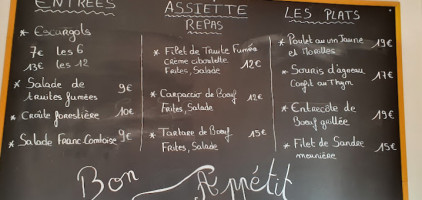 ENTRÉES
* Escargots
7€ les 6
13€ les 12
* Salade de
truites fumées 9€
* Croûte forestière 10€
* Salade Franc Comtoise 9€
ASSIETTE
REPAS
* Filet de Truite Fumée
crème ciboulette
Frites, Salade 12€
* Carpaccio de Boeuf 12€
Frites, Salade
* Tartare de Boeuf 15€
Frites, Salade
LES PLATS
* Poulet au vin Jaune
et Morilles 19€
* Souris d'agneau 17€
Confit au Thym
* Entrecôte de 19€
Boeuf grillée
* Filet de Sandre 15€
meunière
Bon Appétit